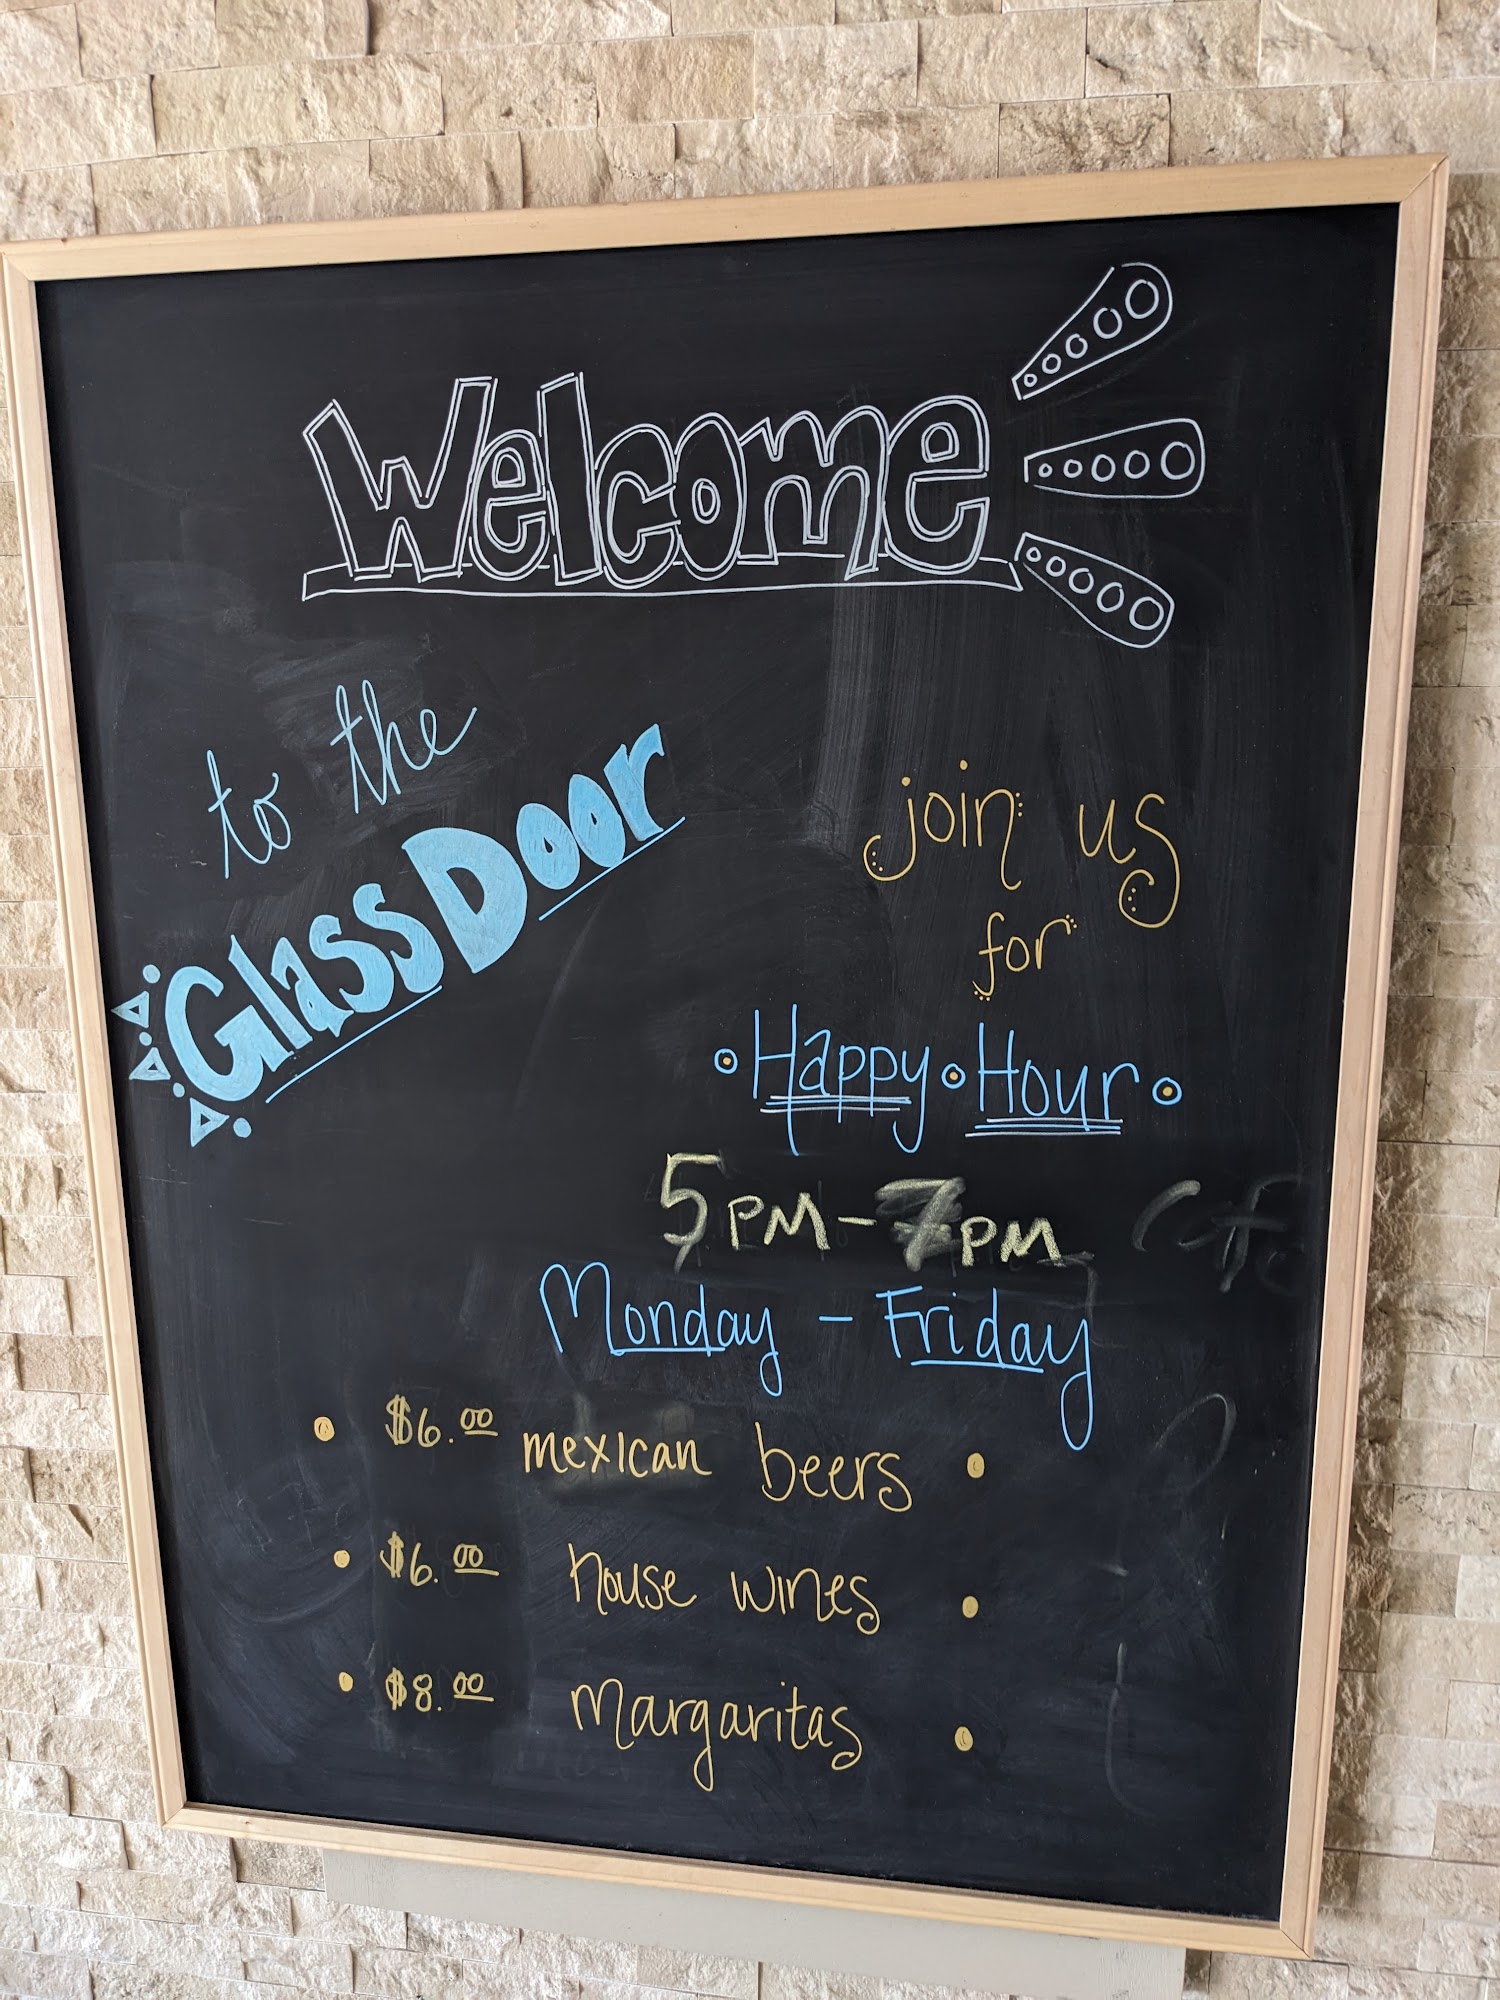 Welcome
to the
Glass Door
join us
for
Happy Hour
5PM-7PM
Monday - Friday
$6.00 mexican beers
$6.00 house wines
$8.00 margaritas